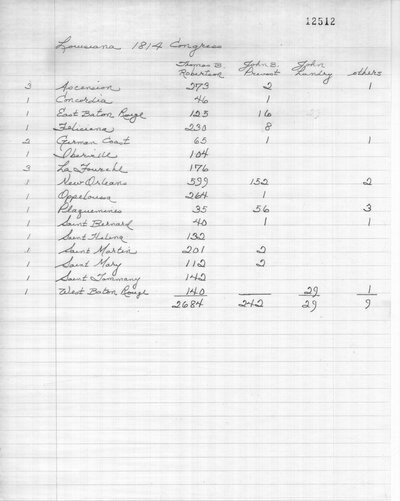 12512
Louisiana 1814 Congress
Thomas B. John B. John
Robertson Prevost Landry others
3 Ascension 273 2 1
1 Concordia 46 1
1 East Baton Rouge 125 16
1 Feliciana 230 8
2 German Coast 65 1 1
1 Iberville 104
3 La Fourche 176
1 New Orleans 599 152 2
1 Oppelousa 264 1
1 Plaquemines 35 56 3
1 Saint Bernard 40 1 1
1 Saint Helena 132
1 Saint Martin 201 2
1 Saint Mary 112 2
1 Saint Tammany 142
1 West Baton Rouge 140 29 1
2684 242 29 9